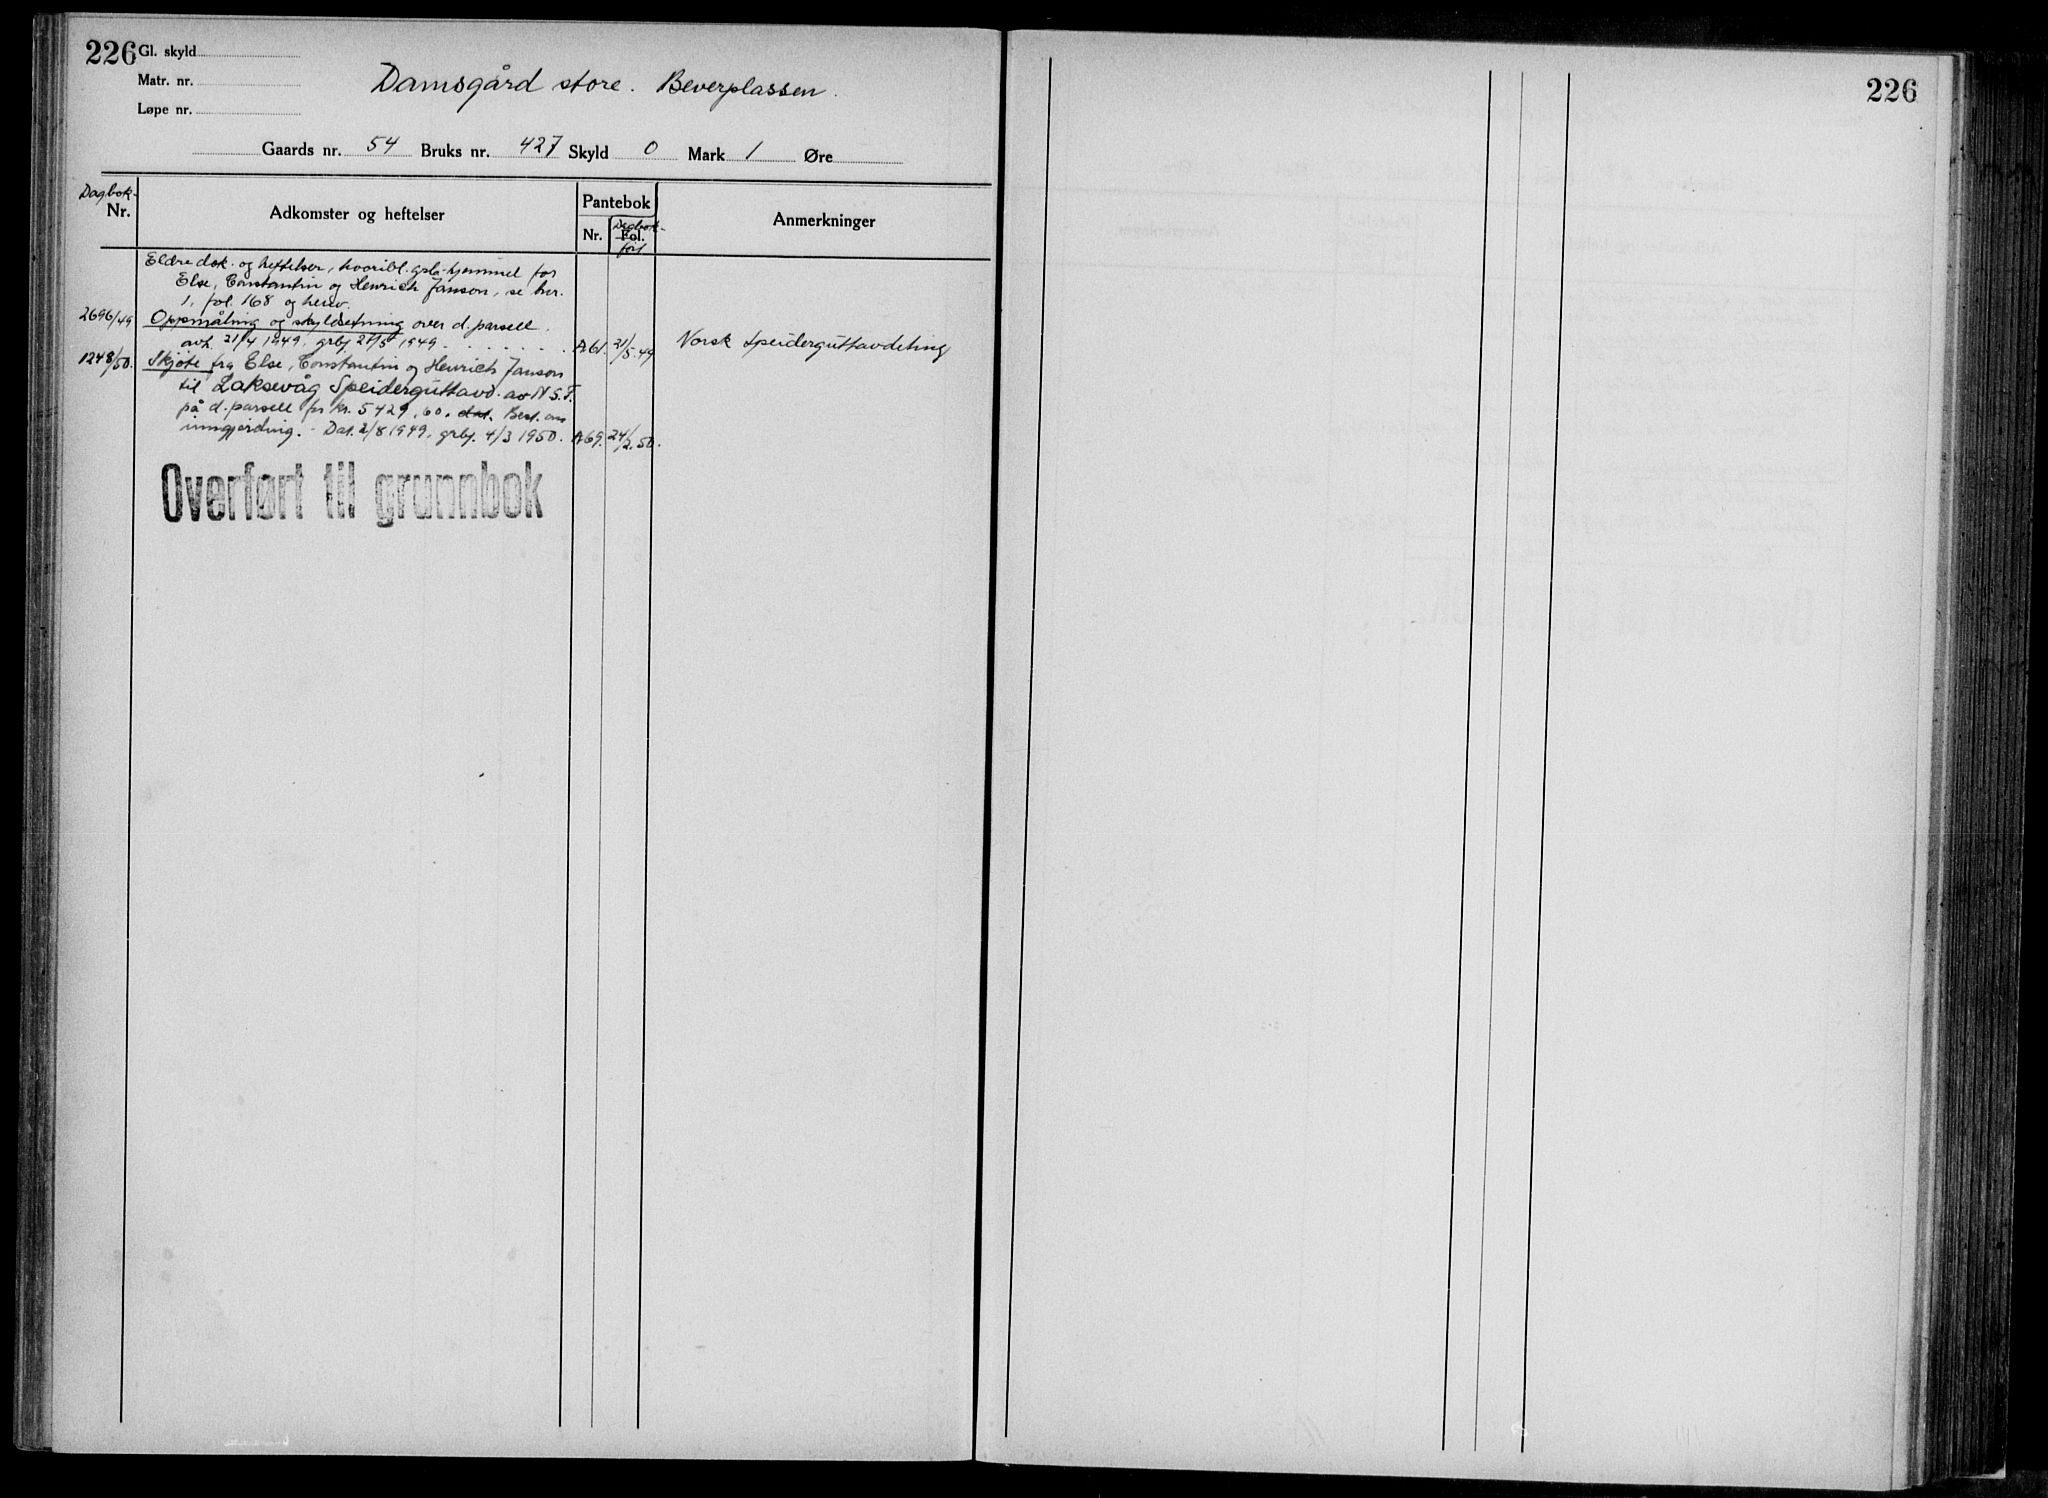 226 Gl. skyld
Matr. nr.
Løpe nr.
Damsgård store. Beverplassen.
Gaards nr. 54 Bruks nr. 427 Skyld 0 Mark 1 Øre
Dagbok-
Nr.
Adkomster og heftelser
Pantebok
Nr.
Dagbok-
Fol.
ført
Anmerkninger
Eldre dok. og heftelser, hvoribl. grb.hjemmel for
Else, Constantin og Henrich Janson, se
1, fol. 168 og herev.
2696/49 Oppmåling og skyldsetning over d. parsell.
avh. 21/4 1949, grbj. 27/5 1949 . . . . . . A61. 21/5.49 Norsk speiderguttavdeling
1248/50. Skjøte fra Else, Constantin og Henrich Janson
til Laksevåg Speiderguttavd. av N.S.F.
på d. parsell for kr. 5429,60. dat. Best. om
inngjerding. - Dat. 2/8 1949, grbj. 4/3 1950. A69. 24/2.50.
Overført til grunnbok
226